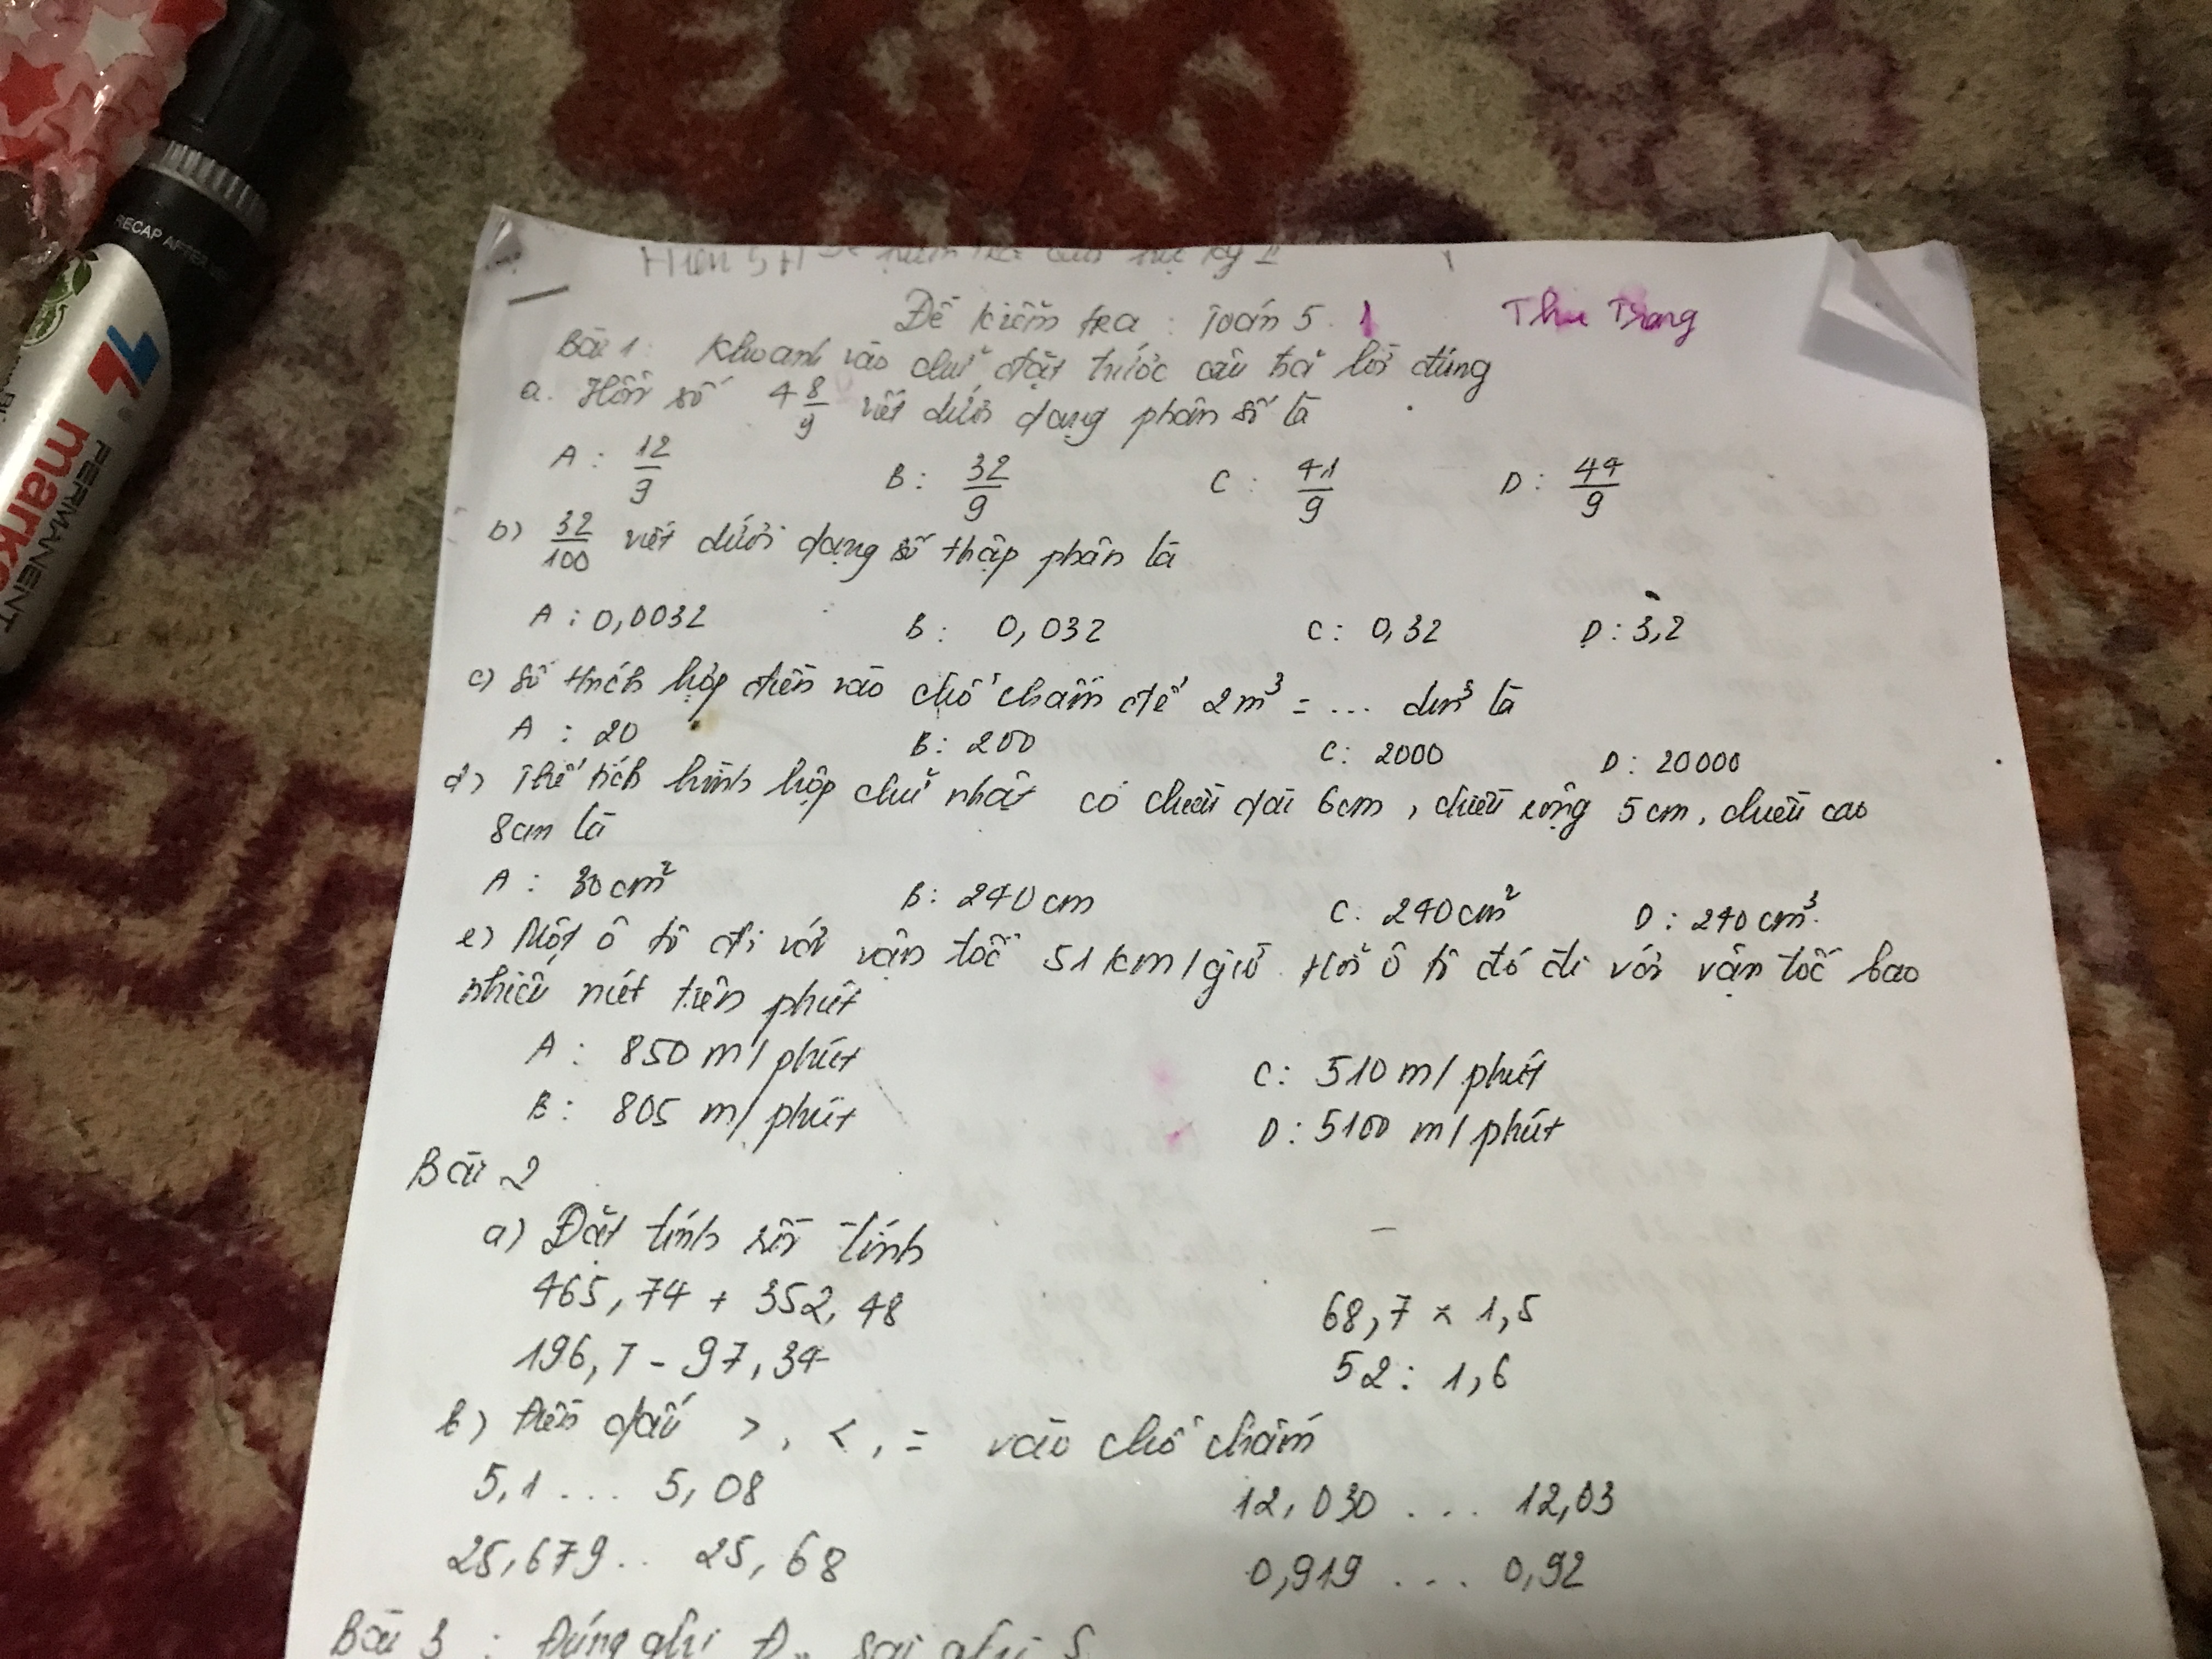 RECAP AFTER
PERMANENT
mark
Đề kiểm tra : Toán 5. 1 Thu Trang
Bài 1: Khoanh vào chữ đặt trước câu trả lời đúng
a. Hỗn số 4 8/9 viết dưới dạng phân số là
A : 12/9 B : 32/9 C : 41/9 D : 44/9
b) 32/100 viết dưới dạng số thập phân là
A : 0,0032 B : 0,032 C : 0,32 D : 3,2
c) Số thích hợp điền vào chỗ chấm để 2m³ = ... dm³ là
A : 20 B : 200 C : 2000 D : 20000
d) Thể tích hình hộp chữ nhật có chiều dài 6cm, chiều rộng 5cm, chiều cao
8cm là
A : 30cm² B : 240cm C. 240cm² D : 240cm³.
e) Một ô tô đi với vận tốc 51km/giờ. Hỏi ô tô đó đi với vận tốc bao
nhiêu mét trên phút
A : 850 m/phút C : 510 m/phút
B : 805 m/phút D : 5100 m/phút
Bài 2
a) Đặt tính rồi tính
465,74 + 352,48 68,7 × 1,5
196,7 - 97,34 52 : 1,6
b) Điền dấu >, <, = vào chỗ chấm
5,1 ... 5,08 12,030 ... 12,03
25,679 .. 25,68 0,919 ... 0,92
Bài 3 : Đúng ghi Đ, sai ghi S